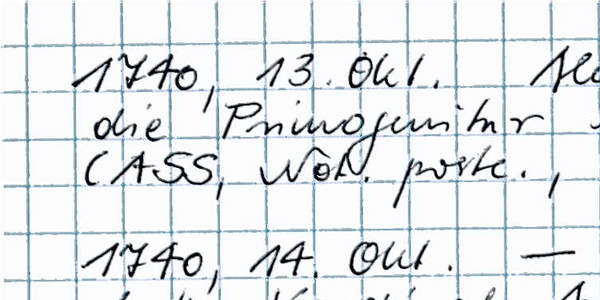 1740, 13. Okt.
die Primogenitur
(ASS, Not. poste.,
1740, 14. Okt. —